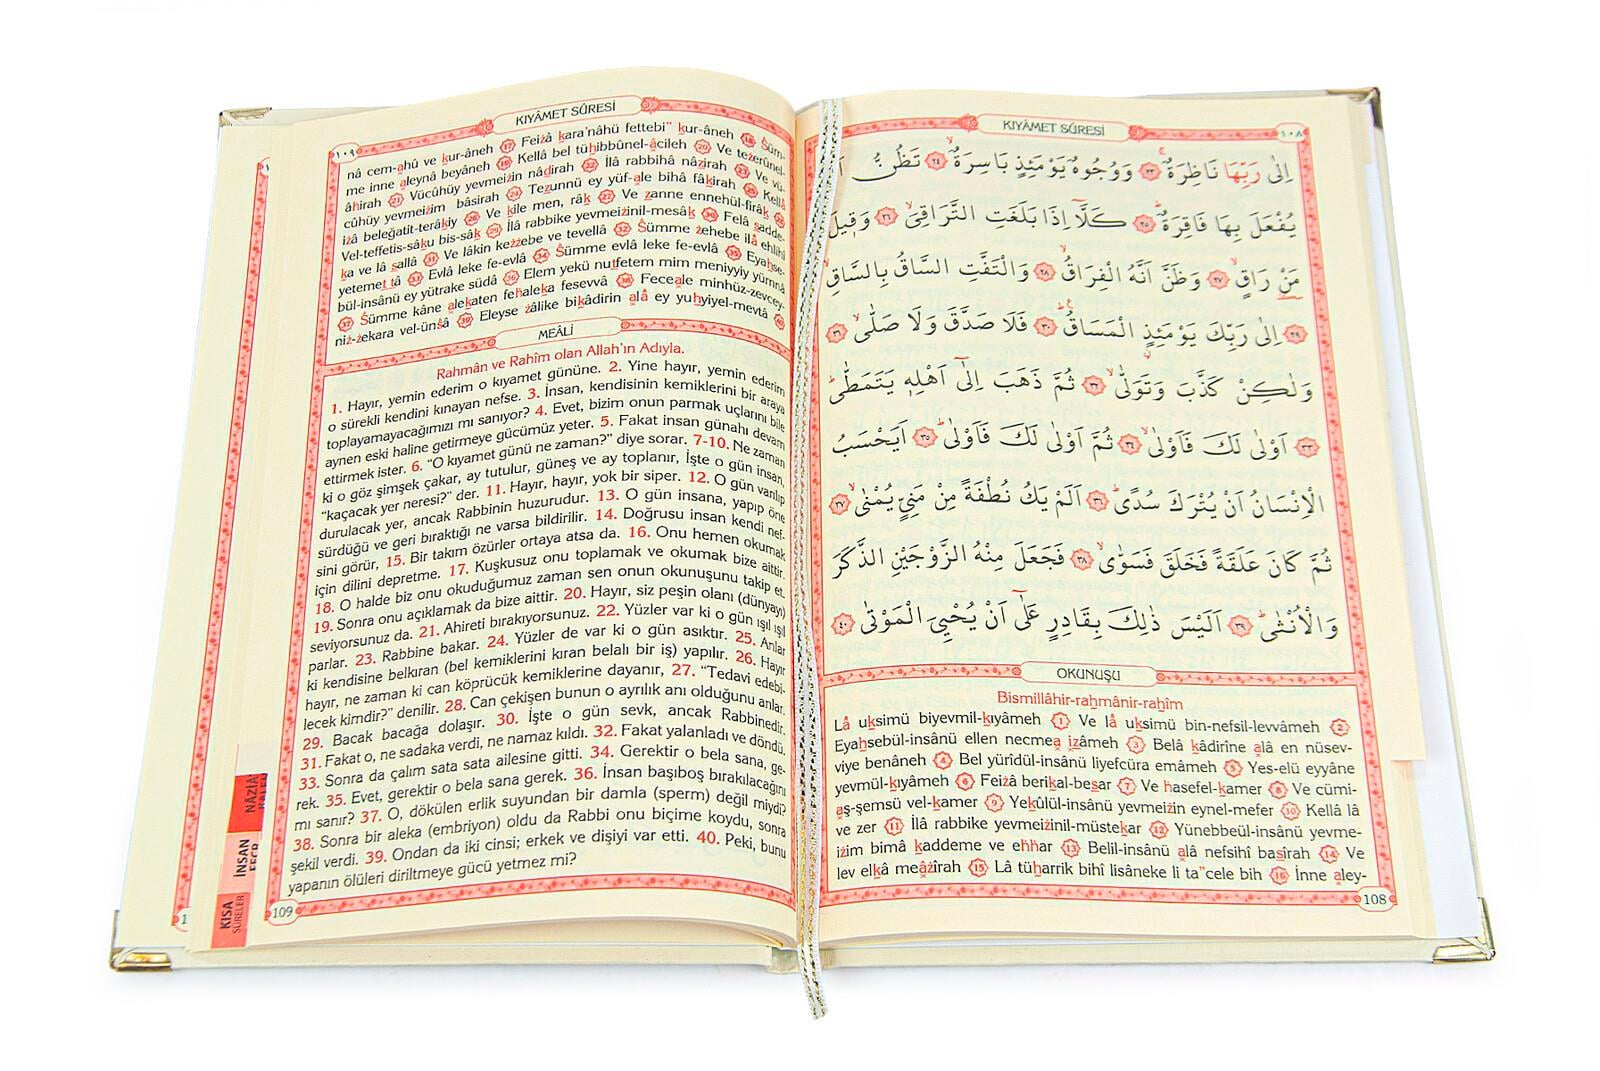 KIYÂMET SÛRESİ
١٠٨
اِلٰى رَبِّهَا نَاظِرَةٌۚ ٢٣ وَوُجُوهٌ يَوْمَئِذٍ بَاسِرَةٌۙ ٢٤ تَظُنُّ
يُفْعَلَ بِهَا فَاقِرَةٌۜ ٢٥ كَلَّٓا اِذَا بَلَغَتِ التَّرَاقِيَۙ ٢٦ وَق۪يلَ
مَنْ رَاقٍۙ ٢٧ وَظَنَّ اَنَّهُ الْفِرَاقُۙ ٢٨ وَالْتَفَّتِ السَّاقُ بِالسَّاقِۙ
٢٩ اِلٰى رَبِّكَ يَوْمَئِذٍ الْمَسَاقُۜ ٣٠ فَلَا صَدَّقَ وَلَا صَلّٰىۙ ٣١
وَلٰكِنْ كَذَّبَ وَتَوَلّٰىۙ ٣٢ ثُمَّ ذَهَبَ اِلٰٓى اَهْلِه۪ يَتَمَطّٰىۜ
٣٣ اَوْلٰى لَكَ فَاَوْلٰىۙ ٣٤ ثُمَّ اَوْلٰى لَكَ فَاَوْلٰىۜ ٣٥ اَيَحْسَبُ
الْاِنْسَانُ اَنْ يُتْرَكَ سُدًىۜ ٣٦ اَلَمْ يَكُ نُطْفَةً مِنْ مَنِيٍّ يُمْنٰىۙ ٣٧
ثُمَّ كَانَ عَلَقَةً فَخَلَقَ فَسَوّٰىۙ ٣٨ فَجَعَلَ مِنْهُ الزَّوْجَيْنِ الذَّكَرَ
وَالْاُنْثٰىۜ ٣٩ اَلَيْسَ ذٰلِكَ بِقَادِرٍ عَلٰٓى اَنْ يُحْيِيَ الْمَوْتٰى ٤٠
OKUNUŞU
Bismillâhir-rahmânir-rahîm
Lâ uksimü biyevmil-kıyâmeh 1 Ve lâ uksimü bin-nefsil-levvâmeh 2
Eyahsebül-insânü ellen necmea izâmeh 3 Belâ kâdirîne alâ en nüsev-
viye benâneh 4 Bel yürîdül-insânü liyefcüra emâmeh 5 Yes-elü eyyâne
yevmül-kıyâmeh 6 Feizâ berikal-besar 7 Ve hasefel-kamer 8 Ve cümi-
aş-şemsü vel-kamer 9 Yekûlül-insânü yevmeizin eynel-mefer 10 Kellâ lâ
ve zer 11 İlâ rabbike yevmeizinil-müstekar 12 Yünebbeül-insânü yevme-
izim bimâ kaddeme ve ehhar 13 Belil-insânü alâ nefsihî basîrah 14 Ve
lev elkâ meâzîrah 15 Lâ tüharrik bihî lisâneke li ta"cele bih 16 İnne aley-
108
KIYÂMET SÛRESİ
١٠٩
nâ cem-ahû ve kur-âneh 17 Feizâ kara'nâhü fettebi" kur-âneh 18 Süm-
me inne aleynâ beyâneh 19 Kellâ bel tühibbûnel-âcileh 20 Ve tezerûnel-
âhirah 21 Vücûhüy yevmeizin nâdirah 22 İlâ rabbihâ nâzirah 23 Ve vü-
cûhüy yevmeizim bâsirah 24 Tezunnü ey yüf-ale bihâ fâkirah 25 Kellâ
izâ beleğatit-terâkiy 26 Ve kîle men, râk 27 Ve zanne ennehül-firâk 28
Vel-teffetis-sâku bis-sâk 29 İlâ rabbike yevmeizinil-mesâk 30 Felâ sadde-
ka ve lâ sallâ 31 Ve lâkin kezzebe ve tevellâ 32 Sümme zehebe ilâ ehlihî
yetemettâ 33 Evlâ leke fe-evlâ 34 Sümme evlâ leke fe-evlâ 35 Eyahse-
bül-insânü ey yütrake südâ 36 Elem yekü nutfetem mim meniyyiy yümnâ
37 Sümme kâne alekaten fehaleka fesevvâ 38 Feceale minhüz-zevcey-
niz-zekara vel-ünsâ 39 Eleyse zâlike bikâdirin alâ ey yuhyiyel-mevtâ 40
MEÂLİ
Rahmân ve Rahîm olan Allah'ın Adıyla.
1. Hayır, yemin ederim o kıyamet gününe. 2. Yine hayır, yemin ederim
o sürekli kendini kınayan nefse. 3. İnsan, kendisinin kemiklerini bir araya
toplayamayacağımızı mı sanıyor? 4. Evet, bizim onun parmak uçlarını bile
aynen eski haline getirmeye gücümüz yeter. 5. Fakat insan günahı devam
ettirmek ister. 6. "O kıyamet günü ne zaman?" diye sorar. 7-10. Ne zaman
ki o göz şimşek çakar, ay tutulur, güneş ve ay toplanır, İşte o gün insan,
"kaçacak yer neresi?" der. 11. Hayır, hayır, yok bir siper. 12. O gün varılıp
durulacak yer, ancak Rabbinin huzurudur. 13. O gün insana, yapıp öne
sürdüğü ve geri bıraktığı ne varsa bildirilir. 14. Doğrusu insan kendi nef-
sini görür, 15. Bir takım özürler ortaya atsa da. 16. Onu hemen okumak
için dilini depretme. 17. Kuşkusuz onu toplamak ve okumak bize aittir.
18. O halde biz onu okuduğumuz zaman sen onun okunuşunu takip et.
19. Sonra onu açıklamak da bize aittir. 20. Hayır, siz peşin olanı (dünyayı)
seviyorsunuz da. 21. Ahireti bırakıyorsunuz. 22. Yüzler var ki o gün ışıl ışıl
parlar. 23. Rabbine bakar. 24. Yüzler de var ki o gün asıktır. 25. Anlar
ki kendisine belkıran (bel kemiklerini kıran belalı bir iş) yapılır. 26. Hayır
hayır, ne zaman ki can köprücük kemiklerine dayanır, 27. "Tedavi edebi-
lecek kimdir?" denilir. 28. Can çekişen bunun o ayrılık anı olduğunu anlar.
29. Bacak bacağa dolaşır. 30. İşte o gün sevk, ancak Rabbinedir.
31. Fakat o, ne sadaka verdi, ne namaz kıldı. 32. Fakat yalanladı ve döndü,
33. Sonra da çalım sata sata ailesine gitti. 34. Gerektir o bela sana, ge-
rek. 35. Evet, gerektir o bela sana gerek. 36. İnsan başıboş bırakılacağını
mı sanır? 37. O, dökülen erlik suyundan bir damla (sperm) değil miydi?
38. Sonra bir aleka (embriyon) oldu da Rabbi onu biçime koydu, sonra
şekil verdi. 39. Ondan da iki cinsi; erkek ve dişiyi var etti. 40. Peki, bunu
yapanın ölüleri diriltmeye gücü yetmez mi?
109
NÂZİA
İNSAN
FECR
KISA
SÛRELER